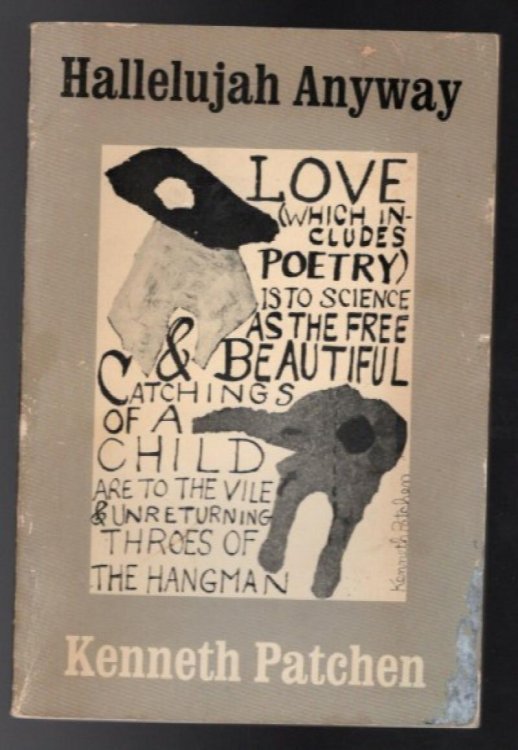 Hallelujah Anyway
LOVE
(WHICH IN-
CLUDES
POETRY)
IS TO SCIENCE
AS THE FREE
& BEAUTIFUL
CATCHINGS
OF A
CHILD
ARE TO THE VILE
& UNRETURNING
THROES OF
THE HANGMAN
Kenneth Patchen
Kenneth Patchen